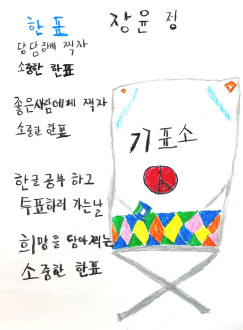 한표
장윤정
당당하게 찍자
소중한 한표
좋은사람에게 찍자
소중한 한표
기표소
한글공부 하고
투표하러 가는날
희망을 담아 찍는
소중한 한표